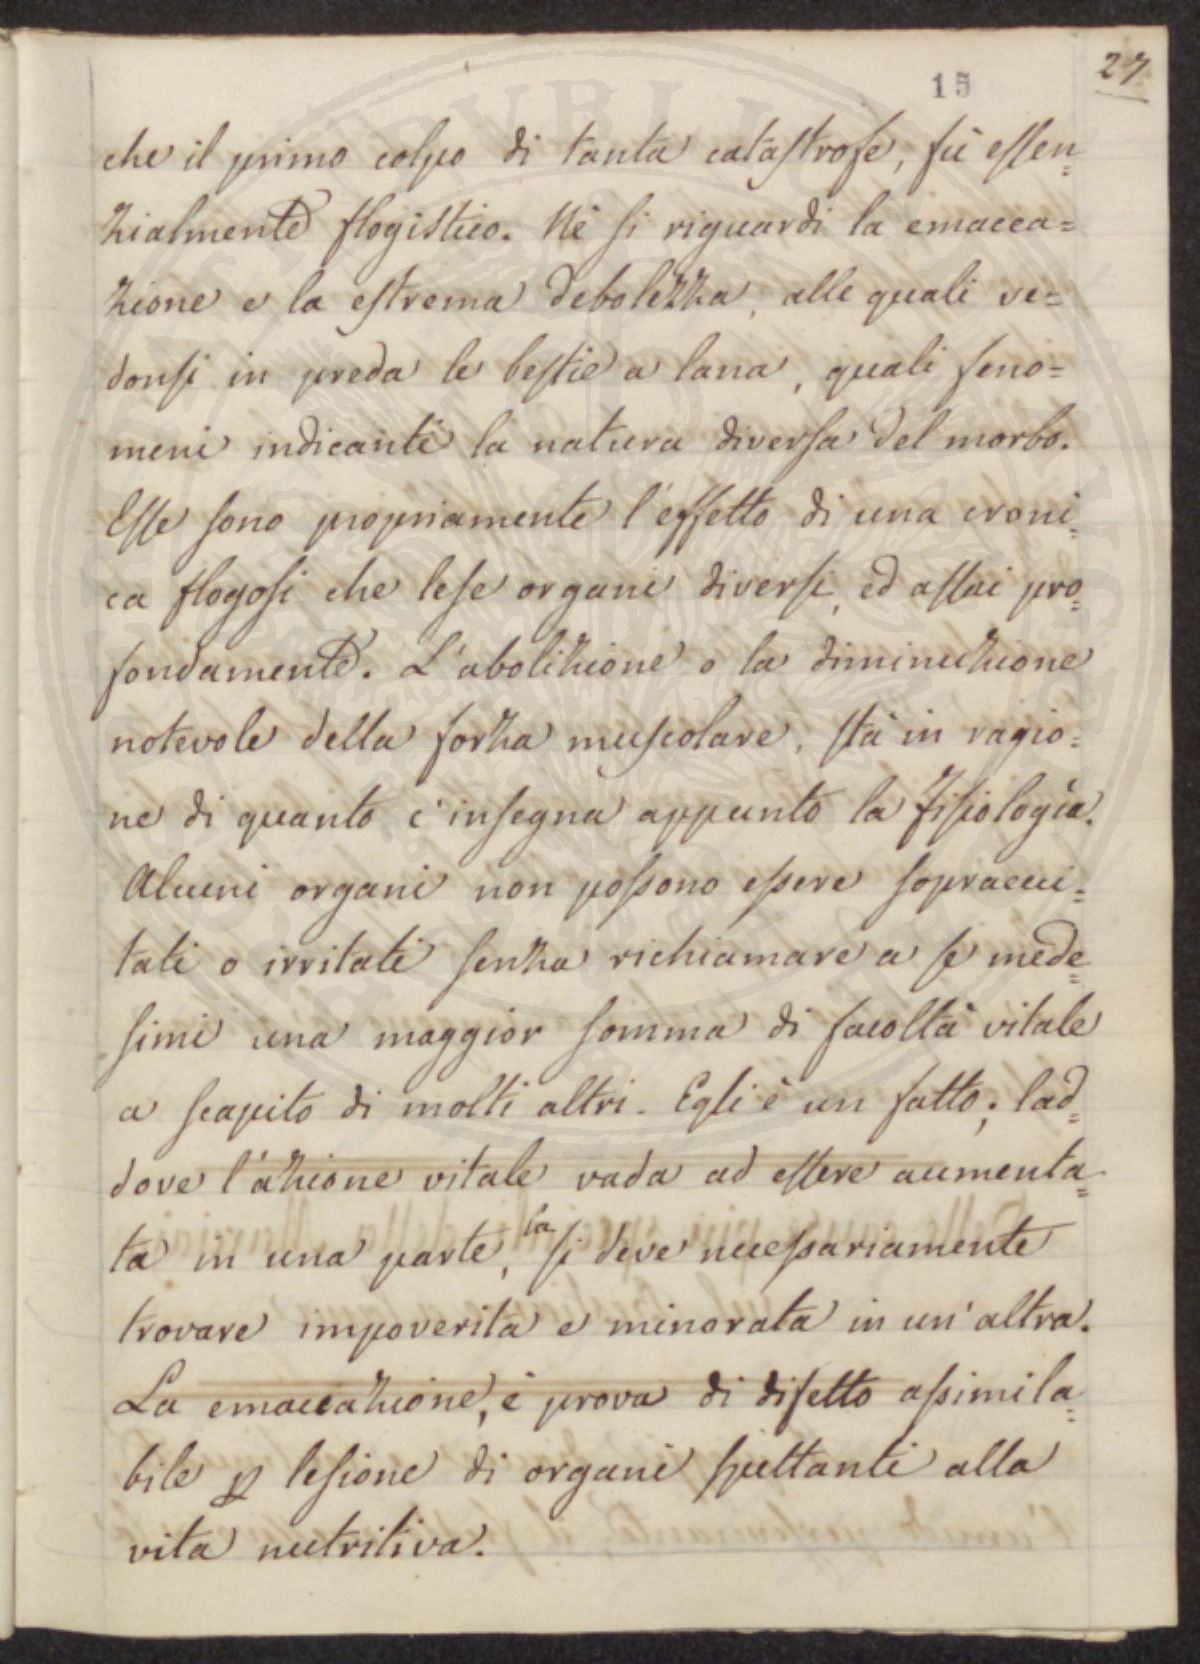 15
27
che il primo colpo di tanta catastrofe, fù essen=
zialmente flogistico. Nè si riguardi la emacea=
zione e la estrema debolezza, alle quali ve=
donsi in preda le bestie a lana, quali feno=
meni indicanti la natura diversa del morbo.
Esse sono propriamente l'effetto di una croni=
ca flogosi che lese organi diversi, ed assai pro=
fondamente. L'abolizione o la diminuzione
notevole della forza muscolare, stà in ragio=
ne di quanto c'insegna appunto la Fisiologìa.
Alcuni organi non possono essere sopraecci=
tati o irritati senza richiamare a se mede=
simi una maggior somma di facoltà vitale
a scapito di molti altri. Egli è un fatto; lad=
dove l'azione vitale vada ad essere aumenta=
ta in una parte, la si deve necessariamente
trovare impoverita e minorata in un'altra.
La emaceazione, è prova di difetto assimila=
bile p lesione di organi spettanti alla
vita nutritiva.